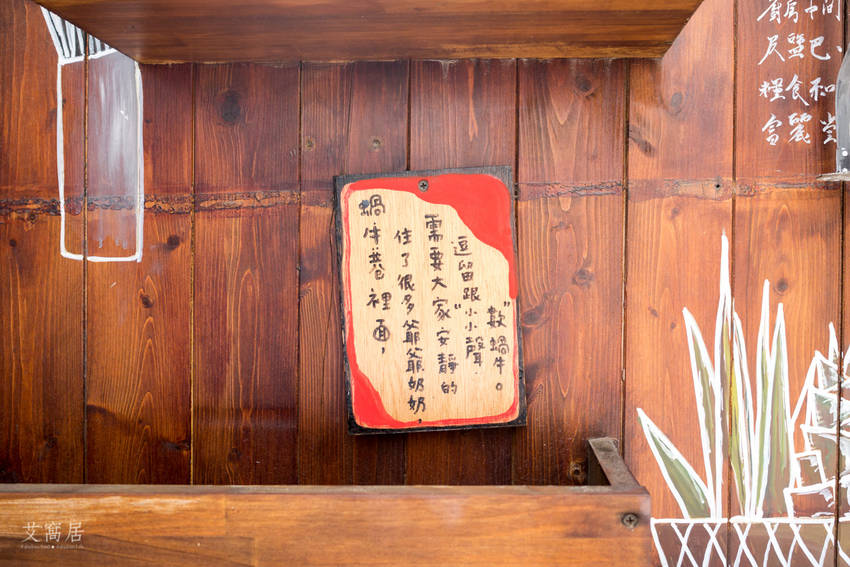 蝸牛巷裡面，
住了很多爺爺奶奶，
需要大家安靜的
逗留跟"小小聲
數"蝸牛。
廚房中間
鹽巴、
糧食和
富麗堂
艾窩居